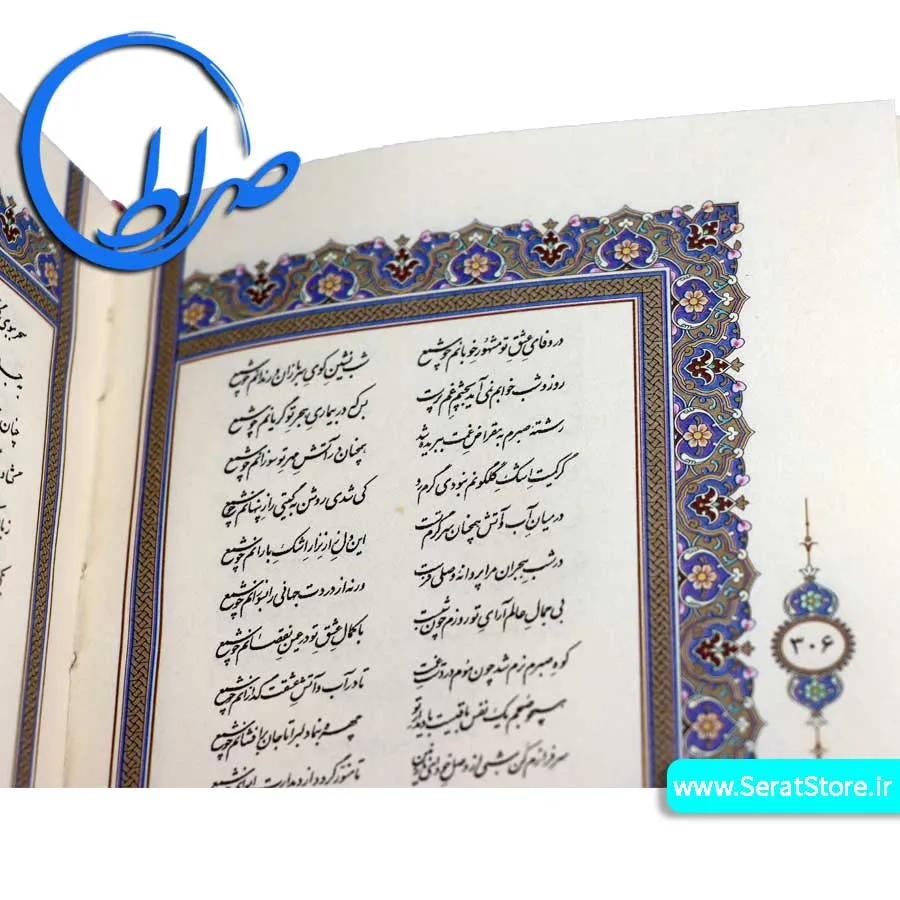 صراط
در وفای عشق تو مشهور خوبانم چو شمع
شب نشین کوی سربازان و رندانم چو شمع
روز و شب خوابم نمی آید بچشم غم پرست
بس که در بیماری هجر تو گریانم چو شمع
رشته صبرم به مقراض غمت ببریده شد
همچنان در آتش مهر تو سوزانم چو شمع
گر کمیت اشک گلگونم نبودی گرم رو
کی شدی روشن به گیتی راز پنهانم چو شمع
در میان آب و آتش همچنان سرگرم تست
این دل زار نزار اشک بارانم چو شمع
در شب هجران مرا پروانه وصلی فرست
ورنه از دردت جهانی را بسوزانم چو شمع
بی جمال عالم آرای تو روزم چون شبست
با کمال عشق تو در عین نقصانم چو شمع
کوه صبرم نرم شد چون موم در دست غمت
تا در آب و آتش عشقت گدازانم چو شمع
همچو صبحم یک نفس باقیست با دیدار تو
چهره بنما دلبرا تا جان برافشانم چو شمع
سرفرازم کن شبی از وصل خود ای نازنین
تا منور گردد از دیدارت ایوانم چو شمع
۳۰۶
www.SeratStore.ir